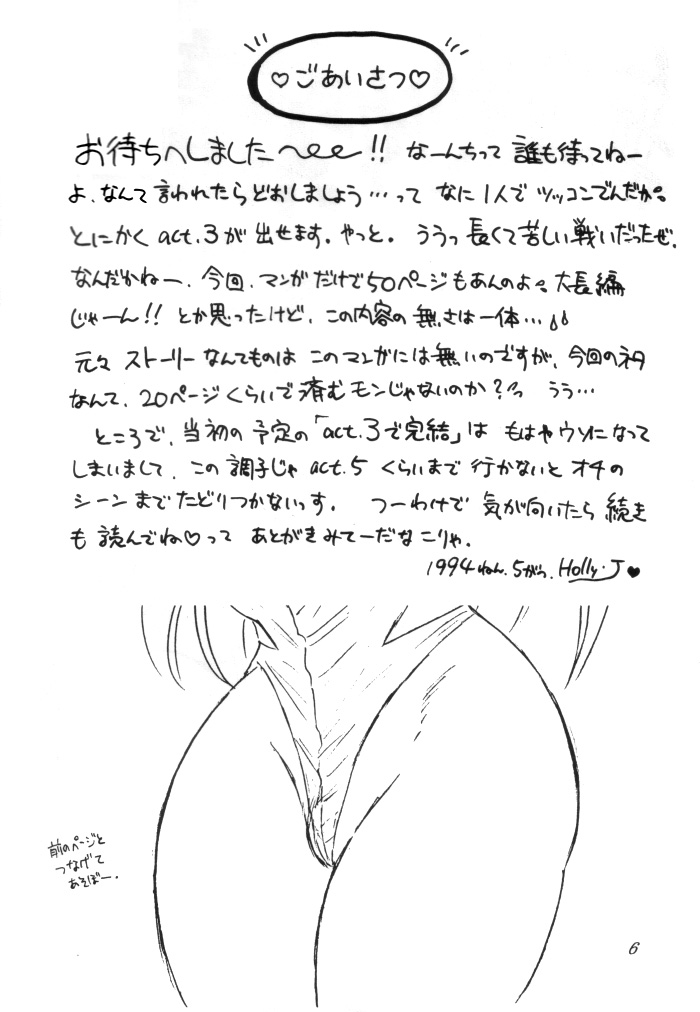 ♡ごあいさつ♡
お待ちへしました〜!! なーんちって 誰も待ってねー
よ、なんて 言われたらどおしましょう…って なに1人で ツッコンでんだか。
とにかく act.3が 出せます。やっと。 ううっ 長くて苦しい戦いだったぜ。
なんだかねー、今回、マンガだけで50ページもあんのよ。大長編
じゃーん!! とか思ったけど、この内容の 無さは一体…
元々 ストーリーなんてものは このマンガには無いのですが、今回のネタ
なんて、20ページくらいで済むモンじゃないのか?っ うう…
ところで、当初の予定の「act.3で完結」は もはやウソになって
しまいまして、この調子じゃ act.5 くらいまで 行かないと オチの
シーンまでたどりつかないっす。 つーわけで 気が向いたら 続き
も 読んでね♡って あとがきみてーだな こりゃ。
1994ねん.5がつ. Holly・J♥
前のページと
つなげて
あそぼー.
6